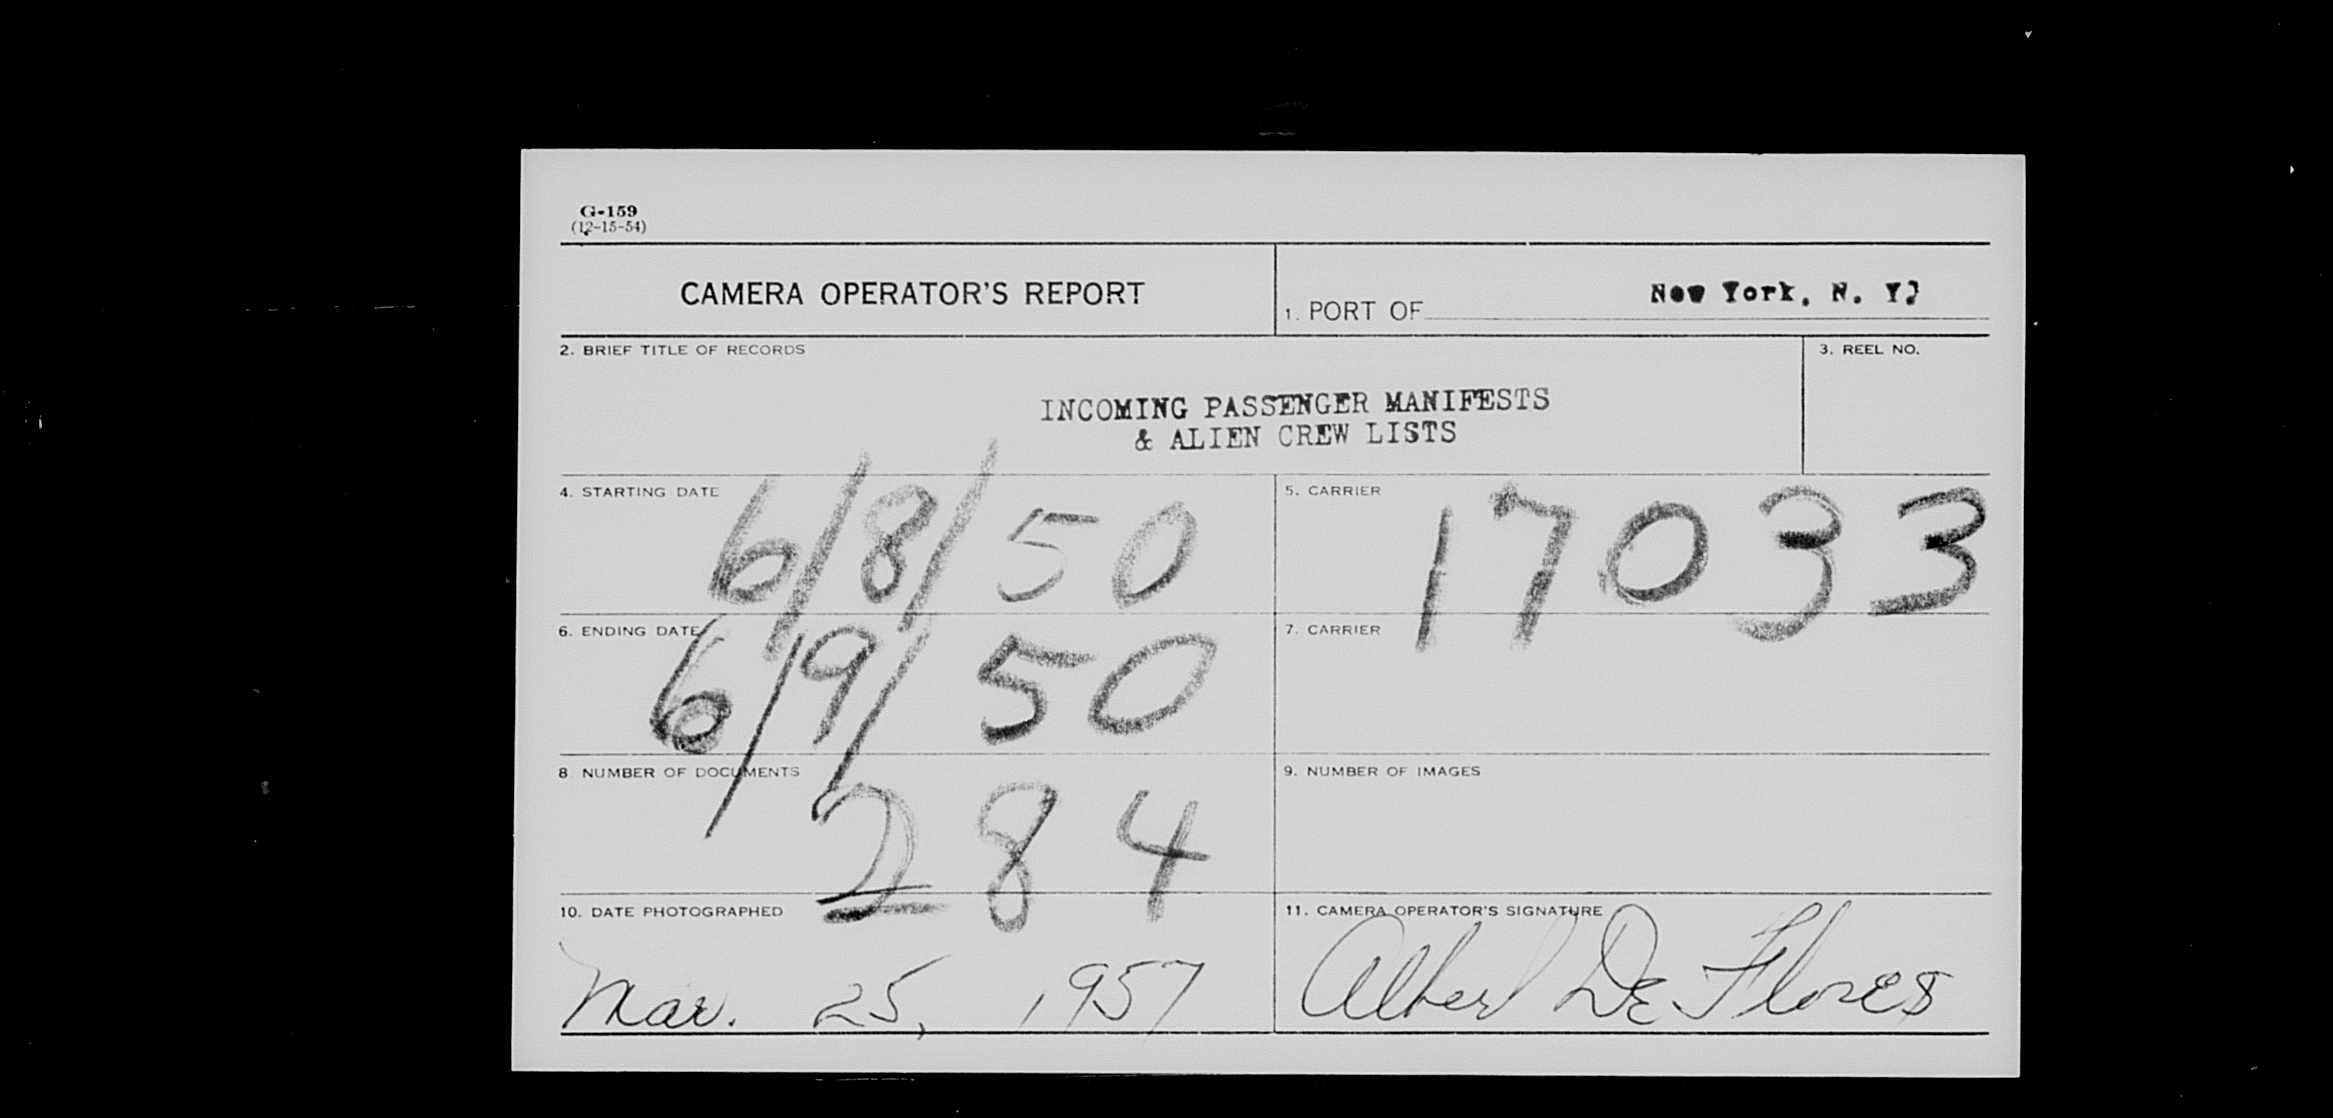 G-159
(12-15-54)
CAMERA OPERATOR'S REPORT
1. PORT OF New York, N. Y.
2. BRIEF TITLE OF RECORDS
INCOMING PASSENGER MANIFESTS
& ALIEN CREW LISTS
3. REEL NO.
4. STARTING DATE 6/8/50
5. CARRIER 17033
6. ENDING DATE 6/9/50
7. CARRIER
8 NUMBER OF DOCUMENTS 284
9. NUMBER OF IMAGES
10. DATE PHOTOGRAPHED
Mar. 25, 1957
11. CAMERA OPERATOR'S SIGNATURE
Albert De Flores